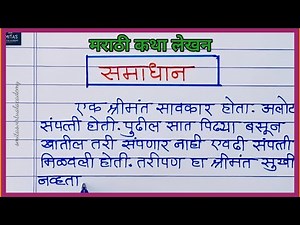 मराठी कथा लेखन
समाधान
एक श्रीमंत सावकार होता. अबोट
संपत्ती होती. पुढील सात पिढ्या बसून
खातील तरी संपणार नाही एवढी संपत्ती
मिळवली होती. तरीपण हा श्रीमंत सुखी
नव्हता